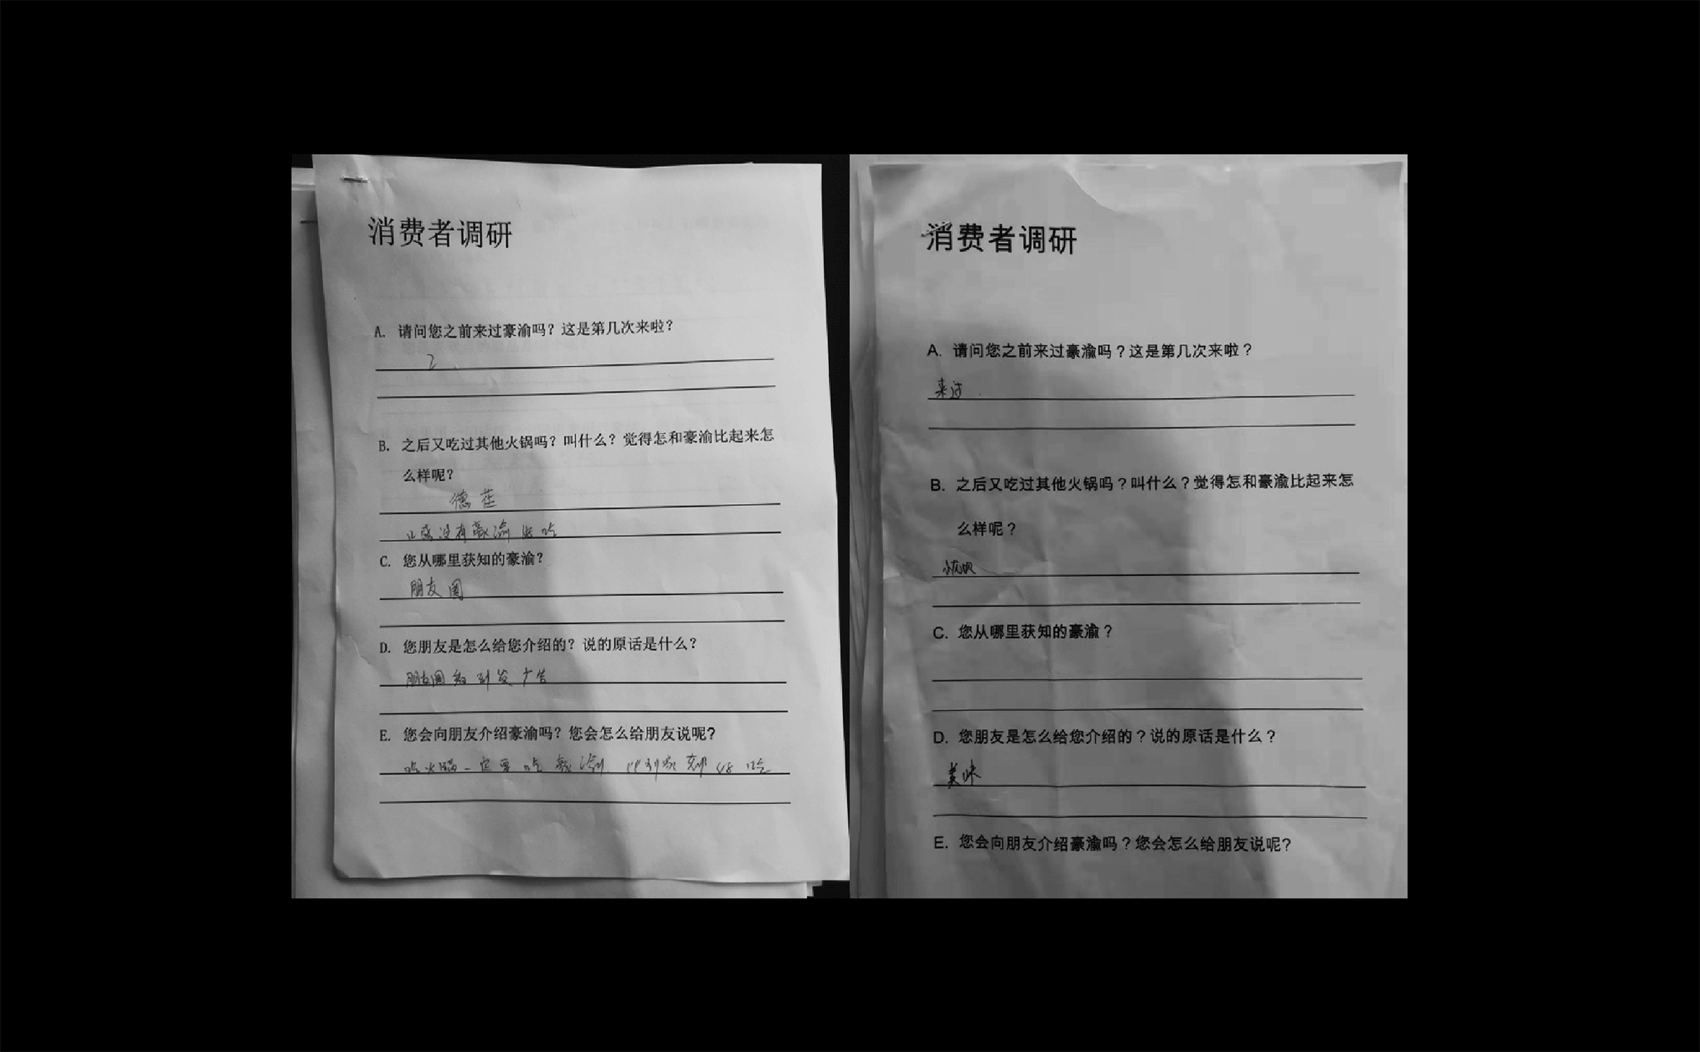 消费者调研
A. 请问您之前来过豪渝吗？这是第几次来啦？
2
B. 之后又吃过其他火锅吗？叫什么？觉得怎和豪渝比起来怎
么样呢？
德庄
没有豪渝好吃
C. 您从哪里获知的豪渝？
朋友圈
D. 您朋友是怎么给您介绍的？说的原话是什么？
朋友圈看到发广告
E. 您会向朋友介绍豪渝吗？您会怎么给朋友说呢？
吃火锅一定要吃豪渝 比别家都好吃
消费者调研
A. 请问您之前来过豪渝吗？这是第几次来啦？
来过
B. 之后又吃过其他火锅吗？叫什么？觉得怎和豪渝比起来怎
么样呢？
C. 您从哪里获知的豪渝？
D. 您朋友是怎么给您介绍的？说的原话是什么？
美味
E. 您会向朋友介绍豪渝吗？您会怎么给朋友说呢？